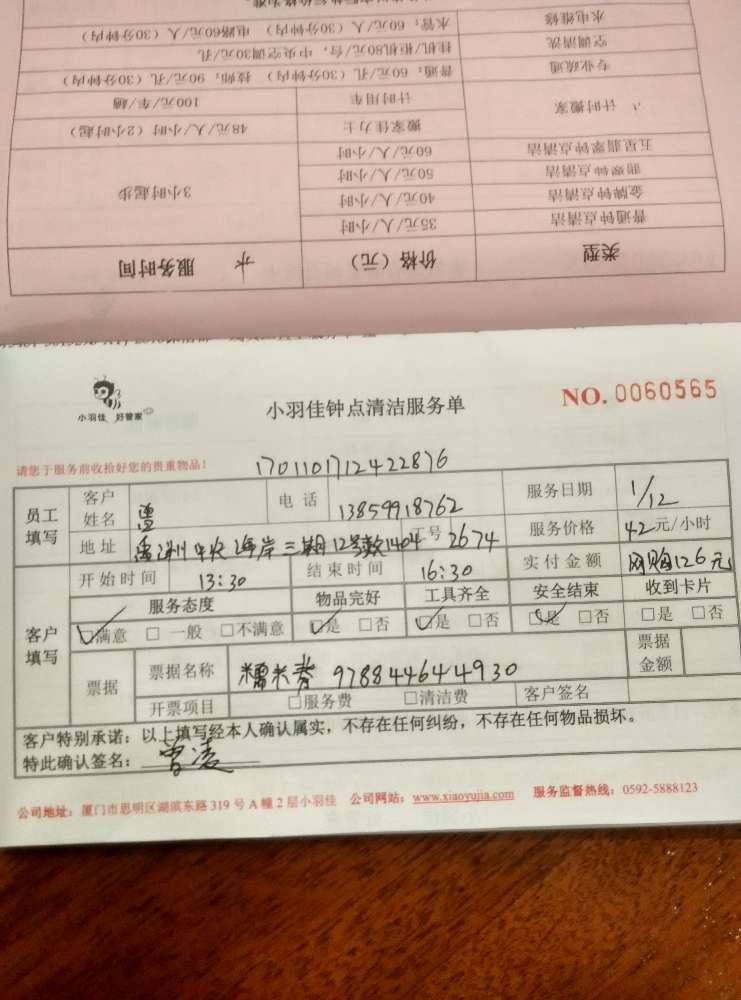 水电维修 水管：60元/人（30分钟内） 电路60元/人（30分钟内）
空调清洗 挂机/柜机80元/台，中央空调30元/孔
专业疏通 普通：60元/孔（30分钟内） 技师：90元/孔（30分钟内）
计时搬家 计时用车 100元/车/辆
搬家佳力士 48元/人/小时（2小时起）
五星翡翠钟点清洁 60元/人/小时
翡翠钟点清洁 50元/人/小时
金牌钟点清洁 40元/人/小时 3小时起步
普通钟点清洁 35元/人/小时
类型 价格（元） 服务时间
小羽佳 好管家
小羽佳钟点清洁服务单
NO. 0060565
请您于服务前收拾好您的贵重物品！
1701101712422876
员工填写 客户姓名 曾 电话 13859918762 服务日期 1/12
地址 中央海岸三期12号数1404 工号 2674 服务价格 42元/小时
开始时间 13:30 结束时间 16:30 实付金额 网购126元
客户填写 服务态度 物品完好 工具齐全 安全结束 收到卡片
☑满意 □一般 □不满意 ☑是 □否 ☑是 □否 ☑是 □否 □是 □否
票据 票据名称 糯米 978844644930 票据金额
开票项目 □服务费 □清洁费 客户签名
客户特别承诺：以上填写经本人确认属实，不存在任何纠纷，不存在任何物品损坏。
特此确认签名：曾凌
公司地址：厦门市思明区湖滨东路319号A幢2层小羽佳 公司网站：www.xiaoyujia.com 服务监督热线：0592-5888123